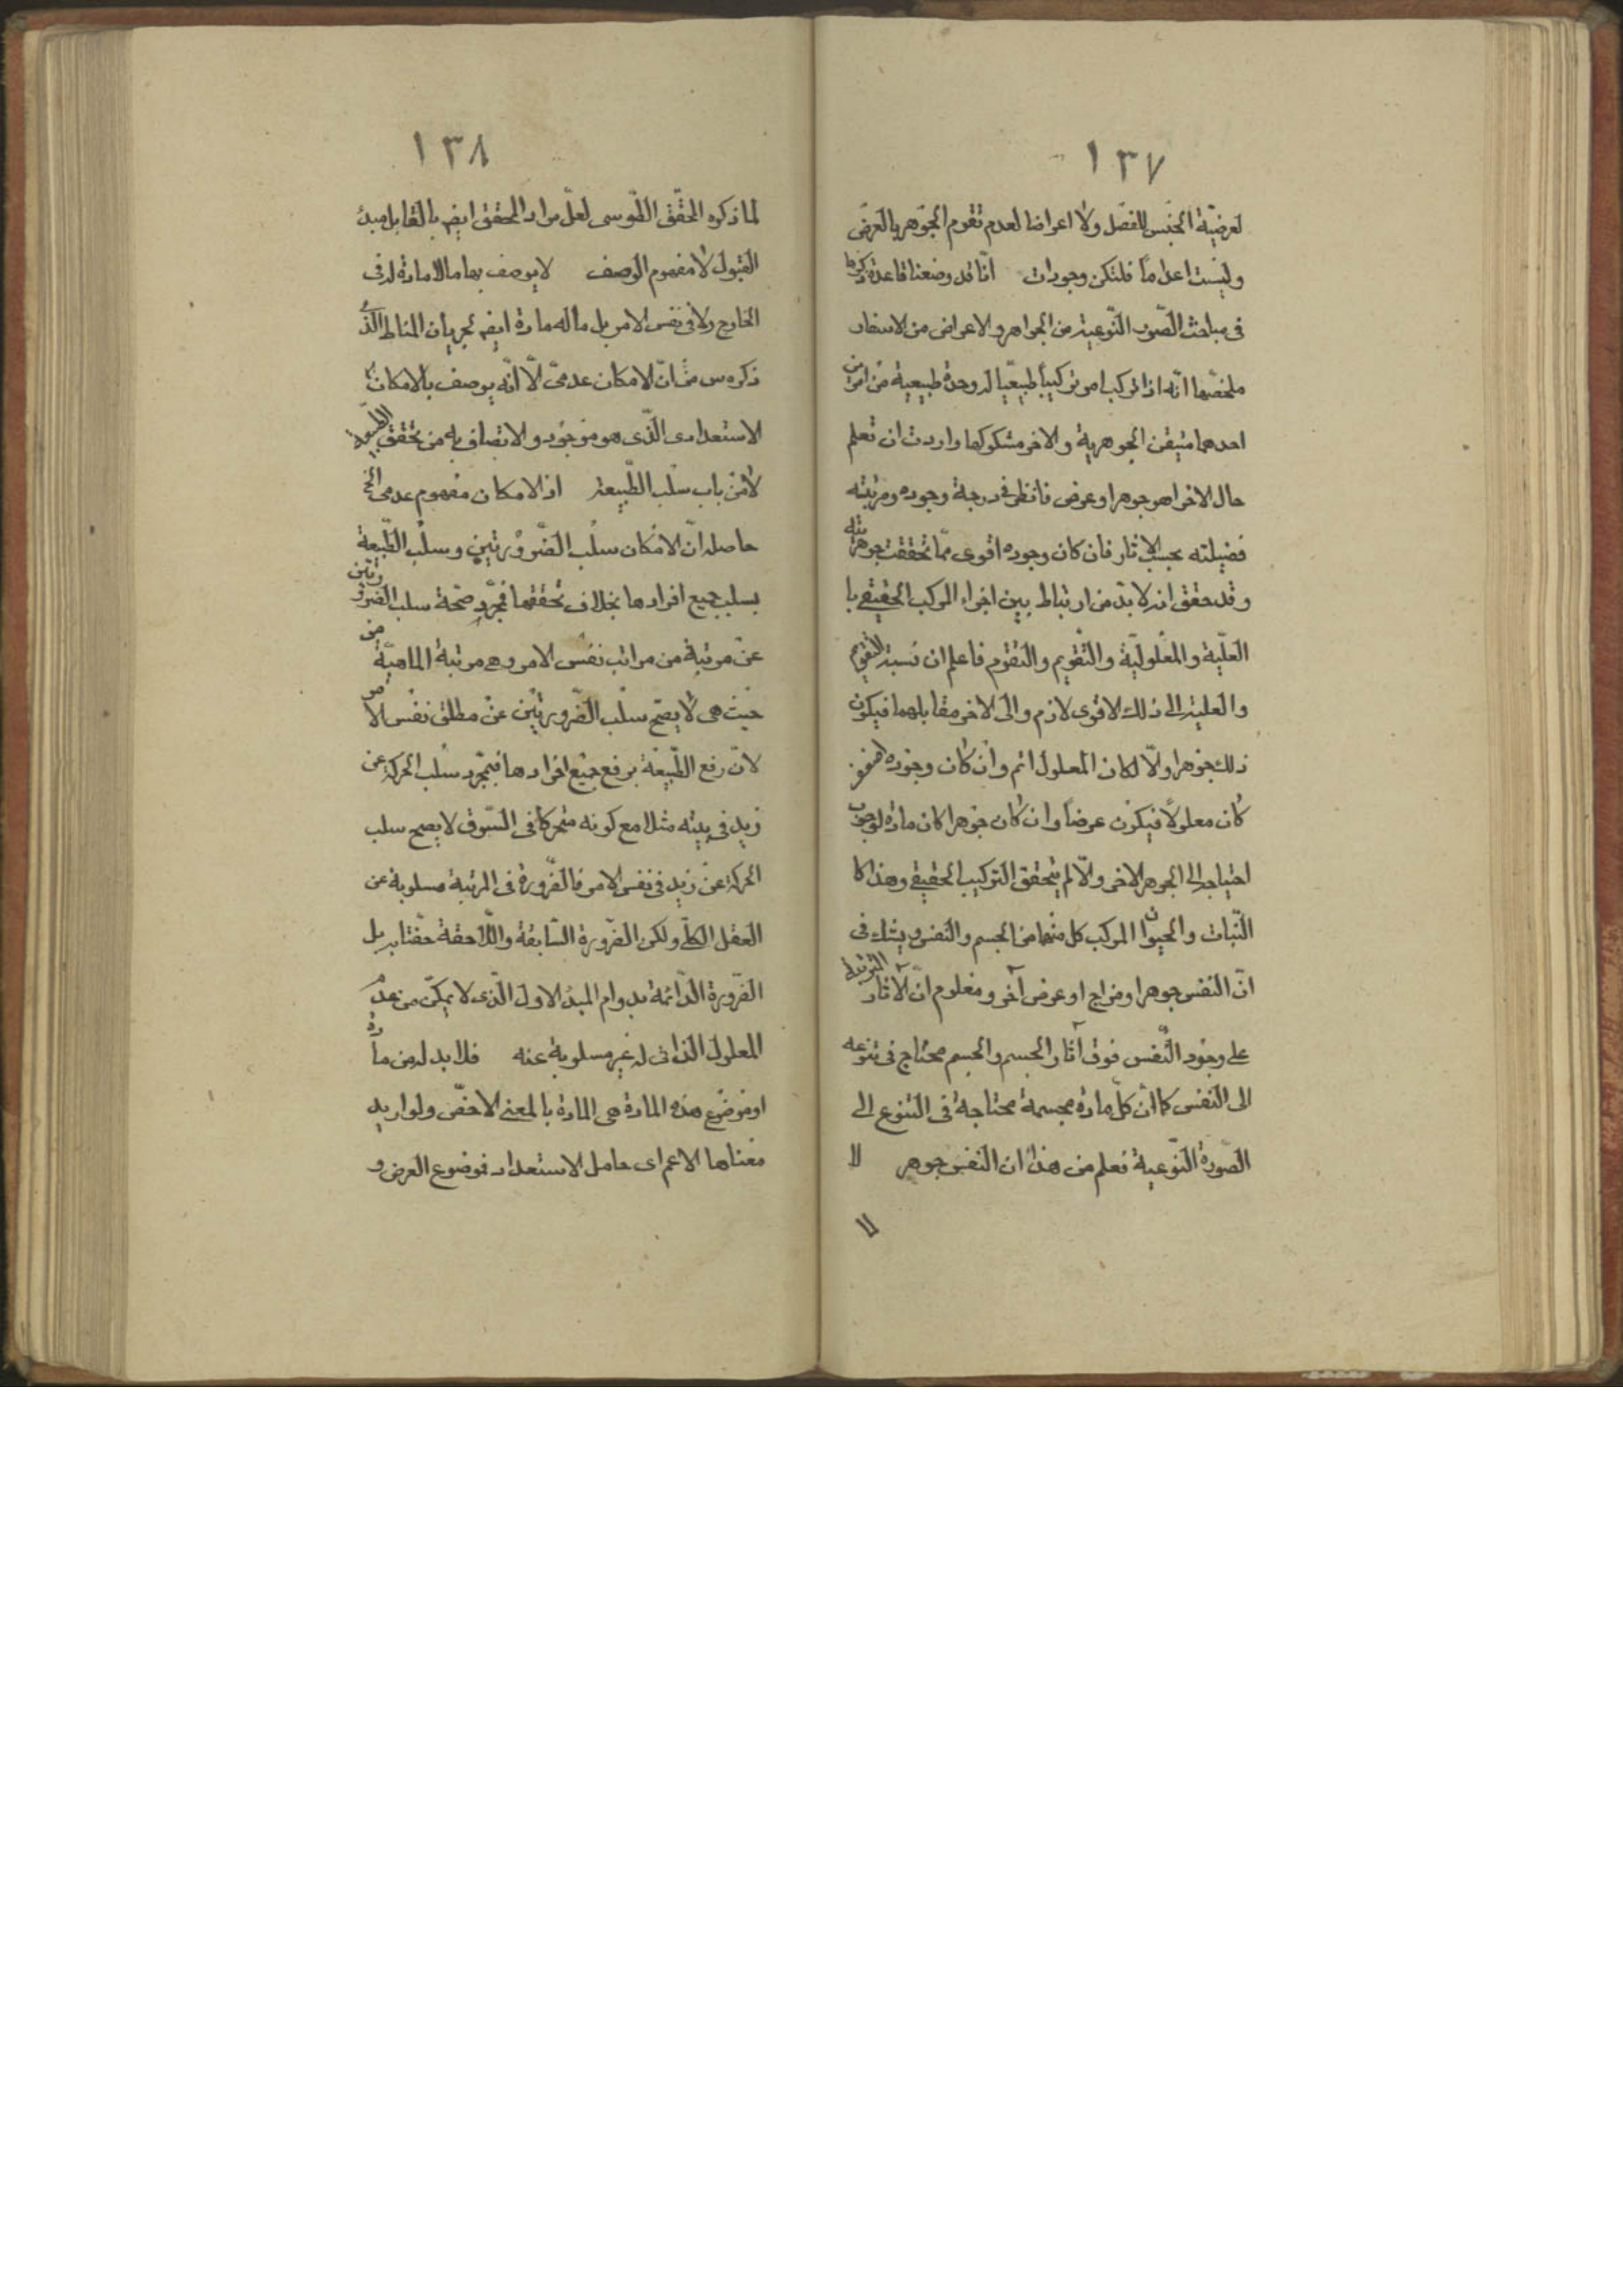 ١٣٧
لعرضيّة الجنس للفصل ولا اعراضا لعدم تقوم الجوهر بالعرض
وليست اعداماً فلتكن وجودات انّا قد وضعنا قاعدة ذكرها
فى مباحث الصّور النّوعية من الجواهر والاعراض من الاسفار
ملخصّها انّه اذا تركب امر تركيباً طبيعيّا له وحدة طبيعية من امرين
احدهما متيقن الجوهرية والاخر مشكوكها واردت ان تعلم
حال الاخر اهو جوهر او عرض فانظر فى درجة وجوده ومرتبته
فضيلته بحسب الاثار فان كان وجوده اقوى ممّا تحققت جوهريته
وقد حقق انه لا بدّ من ارتباط بين اجزاء المركب الحقيقے با
العلّية والمعلوليّة والتّقويم والتقوم فاعلم ان نسبة التقويم
والعلية الى ذلك الاقوى لازم والى الاخر مقابلهما فيكون
ذلك جوهرا ولّا لكان المعلول اتم وان كان وجوده اضعف
كان معلولًا فيكون عرضاً وان كان جوهرا كان مادة لوجوب
احتياجه الى الجوهر الاخر ولّا لم يتحقق التركيب الحقيقے وهذا كا
النّبات والحيوان المركب كل منهما من الجسم والنفس ويشك فى
انّ النفس جوهر او مزاج او عرض آخر ومعلوم انّ الآثار المترتبة
على وجود النّفس فوق آثار الجسم والجسم محتاج فى تنوعه
الى النفس كما ان كلّ مادة مجسمة محتاجة فى التنوع الى
الصّورة النّوعية فعلم من هذا ان النفس جوهر لا
لا
١٣٨
لما ذكره المحقّق الطّوسى لعلّ مراد المحقق ايضہ بالقابل مبدء
القبول لا مفهوم الوصف لا يوصف بها ما لا مادة له فى
الخارج ولا فى نفس الامر بل ما له مادة ايضہ لجريان المناط الّذى
ذكره س من انّ الامكان عدمىّ لّا انّه يوصف بالامكان
الاستعدادى الّذى هو موجود والاتصاف به من تحقق الطّبيعة
لا من باب سلب الطّبيعة اذ الامكان مفهوم عدمى الخ
حاصله انّ الامكان سلب الضّرورتين وسلب الطّبيعة
بسلب جميع افرادها بخلاف تحققها فمجرّد صحّة سلب الضّرورتين
عن مرتبة من مراتب نفس الامر وهى مرتبة الماهيّة من
حيث هى لا يصحّ سلب الضّرورتين عن مطلق نفس الامر
لانّ رفع الطّبيعة برفع جميع افرادها فبمجرّد سلب الحركة عن
زيد فى بيته مثلا مع كونه متحركا فى السّوق لا يصح سلب
الحركة عن زيد فى نفس الامر فالضّرورة فى المرتبة مسلوبة عن
العقل الكلّى ولكن الضّرورة السّابقة واللّاحقة حفّتا به بل
الضّرورة الدّائمة بدوام المبدء الاول الّذى لا يمكّن من عدم
المعلول الذاتى له غير مسلوبة عنه فلا بد له من مادة
او موضوع هذه المادة هى المادة بالمعنى الاخصّ ولو اريد
معناها الاعم اى حامل الاستعداد فموضوع العرض و